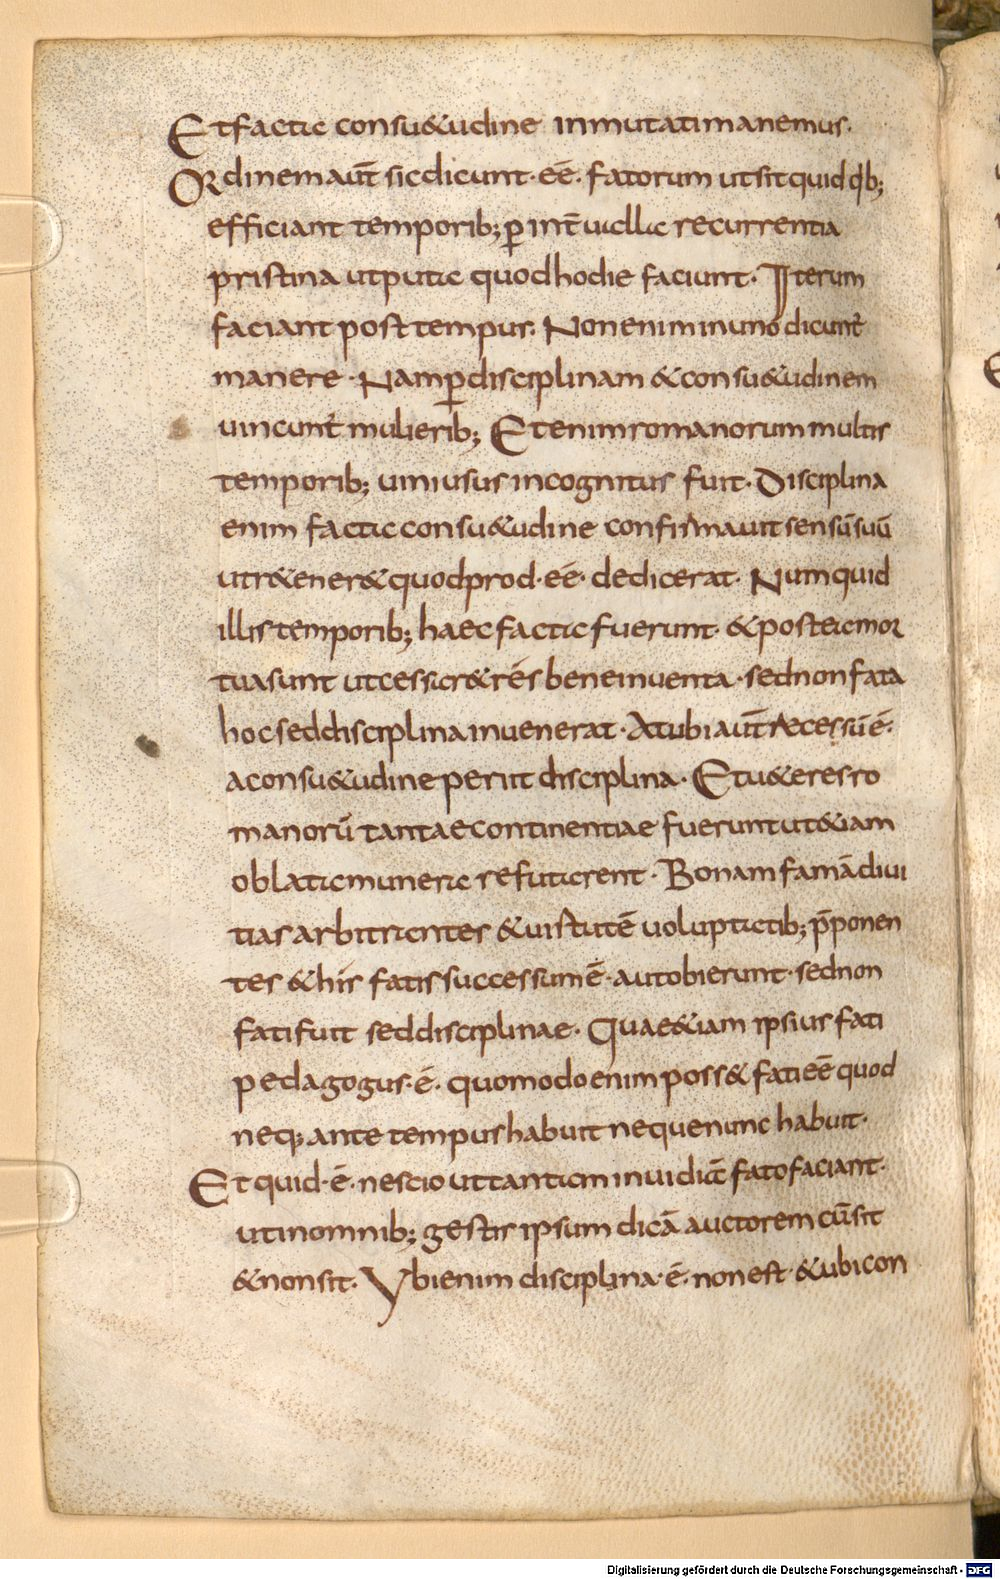 Et facta consu&udine inmutati manemus.
Ordinem aut̄ sic dicunt·eē· fatorum ut sit quid qb;
efficiant temporib; ꝑ int̄ualla recurrentia
pristina utputa quod hodie faciunt· Iterum
faciant post tempus. Non enim in uno dicunt̄
manere· Nam ꝑ disciplinam & consu&udinem
uincunt̄ mulierib; Et enim romanorum multis
temporib; uini usus incognitus fuit· Disciplina
enim facta consu&udine confirmauit sensū suū
ut r&ener& quod prod·eē· dedicerat· Numquid
illis temporib; haec facta fuerunt· & postea mor
tua sunt ut cessar& rēs bene inuenta· sed non fata
hoc sed disciplina inuenerat· At ubi aut̄ recessū ē·
a consu&udine periit disciplina· Et u&eres ro
manorū tantae continentiae fuerunt ut &iam
oblata munera refutarent· Bonam famā diui
tias arbitrantes & uirtutē uoluptatib; p̄ponen
tes & his fatis successum ē· aut obierunt· sed non
fati fuit sed disciplinae· Quae &iam ipsius fati
pedagogus·ē· quomodo enim poss& fati eē quod
neq; ante tempus habuit neque nunc habuit·
Et quid·ē· nescio ut tantam inuidiā fato faciant·
ut in omnib; gestis ipsum dicā auctorem cū sit
& non sit· Ybi enim disciplina·ē· non est· & ubi con
Digitalisierung gefördert durch die Deutsche Forschungsgemeinschaft - DFG